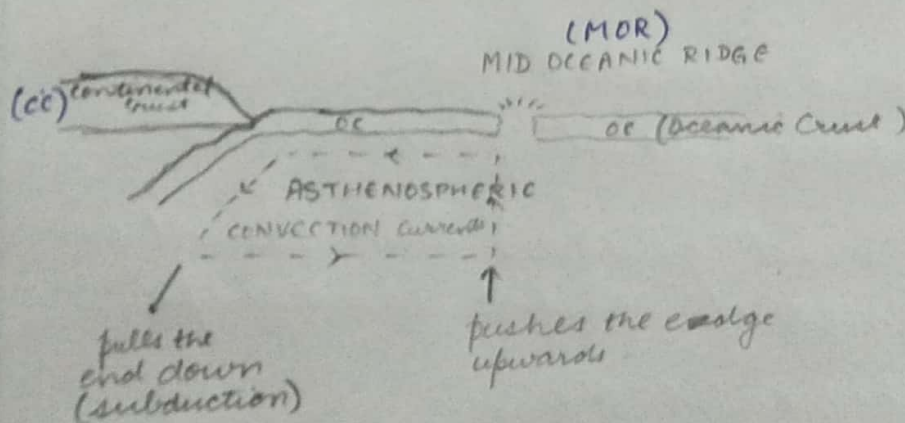 (MOR)
MID OCEANIC RIDGE
(CC) Continental
Crust
OC
OC (Oceanic Crust)
ASTHENOSPHERIC
CONVECTION Currents
pulls the
end down
(subduction)
pushes the edge
upwards